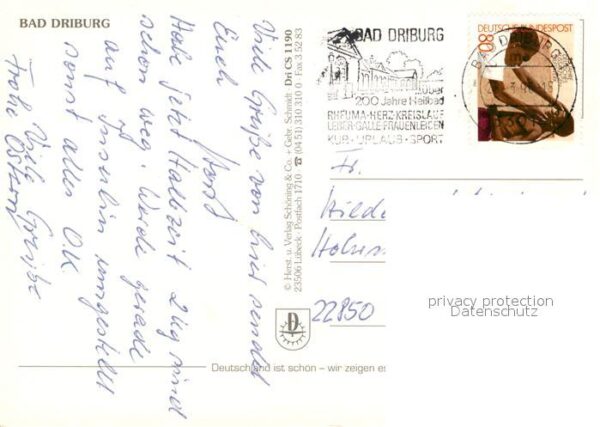 BAD DRIBURG
Viele Grüße von hier sendet
Euch
Horst
Habe jetzt Halbzeit 2 kg sind
schon weg. Werde gerade
auf Insulin umgestellt
sonst alles O.K.
Viele Grüße
Frohe Ostern
© Herst. u. Verlag Schöning & Co. + Gebr. Schmidt · Dri CS 1190
23506 Lübeck · Postfach 1710 · ☎ (04 51) 310 310 · Fax 3 52 83
BAD DRIBURG
über
200 Jahre Heilbad
RHEUMA-HERZ-KREISLAUF
LEBER-GALLE-FRAUENLEIDEN
KUR · URLAUB · SPORT
DEUTSCHE BUNDESPOST
80
BAD DRIBURG
Fr.
Hilde
22850
privacy protection
Datenschutz
D
Deutschland ist schön – wir zeigen es